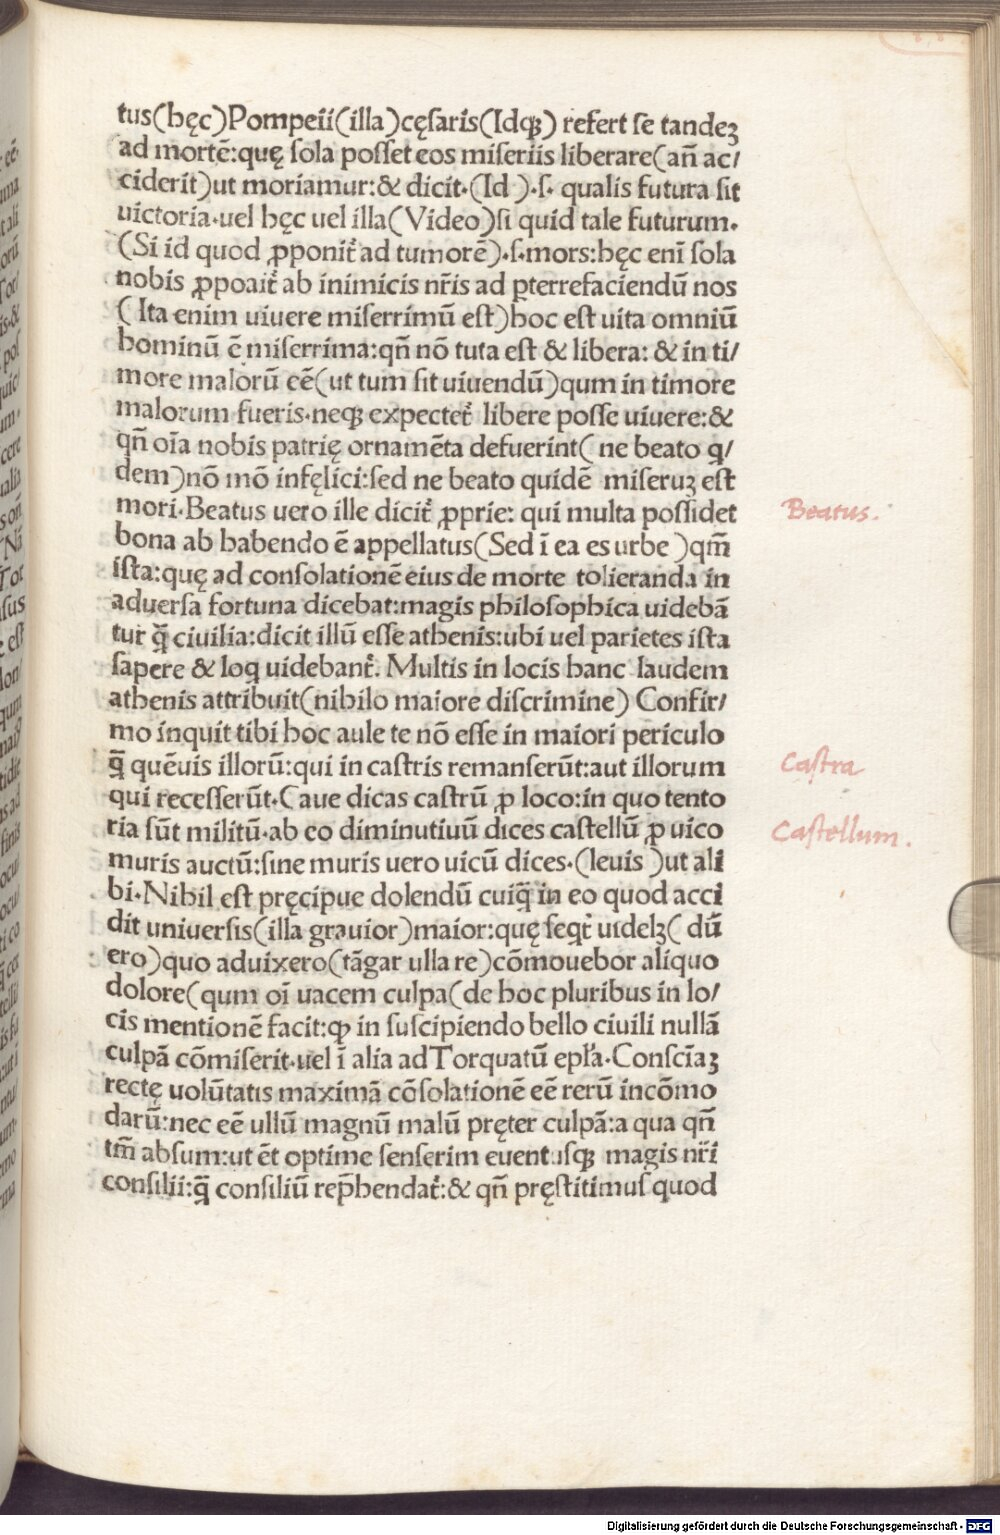 tus(hęc)Pompeii(illa)cęsaris(Idꝙ) refert se tandeꝫ
ad mortē:quę sola posset eos miseriis liberare(an̄ ac/
ciderit)ut moriamur:& dicit.(Id ).s. qualis futura sit
uictoria.uel hęc uel illa(Video)si quid tale futurum.
(Si id quod ꝓponit᷑ ad tumorē).s.mors:hęc eni̅ sola
nobis ꝓpoait᷑ ab inimicis nr̄is ad ꝑterrefaciendū nos
( Ita enim uiuere miserrimū est)hoc est uita omniū
hominū ē miserrima:qn̄ nō tuta est & libera: & in ti/
more malorū eē(ut tum sit uiuendū)qum in timore
malorum fueris.neqꝫ expectet᷑ libere posse uiuere:&
qn̄ oi̅a nobis patrię ornamēta defuerint( ne beato q/
dem)nō mō infęlici:sed ne beato quidē miseruꝫ est
mori.Beatus uero ille dicit᷑ ꝓprie: qui multa possidet
bona ab habendo ē appellatus(Sed i̅ ea es urbe )qm̄
ista:quę ad consolationē eius de morte tolieranda in
aduersa fortuna dicebat:magis philosophica uidebā
tur q̄ ciuilia:dicit illū esse athenis:ubi uel parietes ista
sapere & loq uidebant᷑. Multis in locis hanc laudem
athenis attribuit(nihilo maiore discrimine) Confir/
mo inquit tibi hoc aule te nō esse in maiori periculo
q̄ quēuis illorū:qui in castris remanserūt:aut illorum
qui recesserūt.Caue dicas castrū ꝓ loco:in quo tento
ria sūt militū.ab eo diminutiuū dices castellū ꝓ uico
muris auctū:sine muris uero uicū dices.(leuis )ut ali
bi.Nihil est pręcipue dolendū cuiq̄ in eo quod acci
dit uniuersis(illa grauior)maior:quę seqt᷑ uidelꝫ( dū
ero)quo aduixero(tāgar ulla re)cōmouebor aliquo
dolore(qum oi̅ uacem culpa(de hoc pluribus in lo/
cis mentionē facit:ꝙ in suscipiendo bello ciuili nullā
culpā cōmiserit.uel i̅ alia ad Torquatū epl̄a.Consci̅aꝫ
rectę uolūtatis maximā cōsolationē eē rerū incōmo
darū:nec eē ullū magnū malū pręter culpā:a qua qn̄
tm̄ absum:ut ēt optime senserim euentusqꝫ magis nr̄i
consilii:q̄ consiliū rep̄hendat᷑:& qn̄ pręstitimus quod
Beatus.
Castra
Castellum.
Digitalisierung gefördert durch die Deutsche Forschungsgemeinschaft - DFG